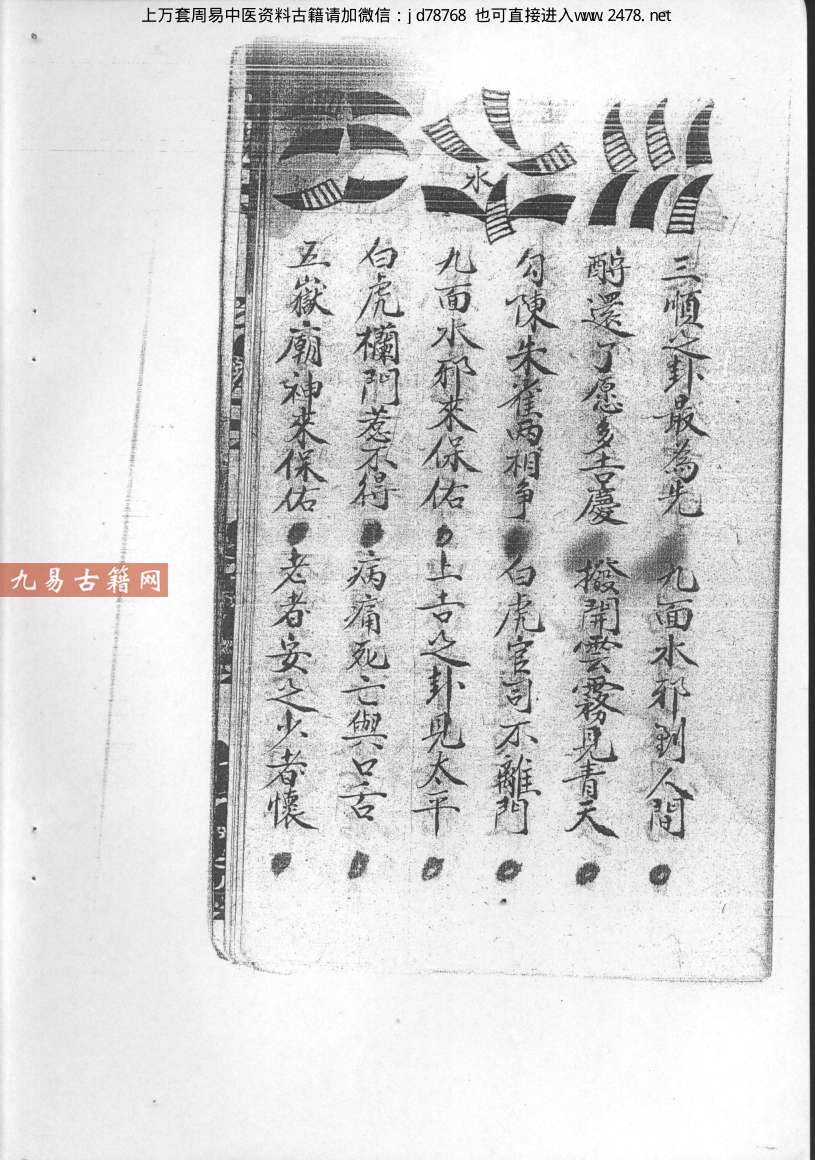 上万套周易中医资料古籍请加微信：jd78768 也可直接进入www.2478.net
水
三順之卦最為先 九面水邪到人間
酧還了愿多吉慶 撥開雲霧見青天
勾陳朱雀两相争 白虎官司不離門
九面水邪來保佑 上吉之卦見太平
白虎欄門惹不得 病痛死亡與口舌
五嶽廟神來保佑 老者安之少者懷
九易古籍网